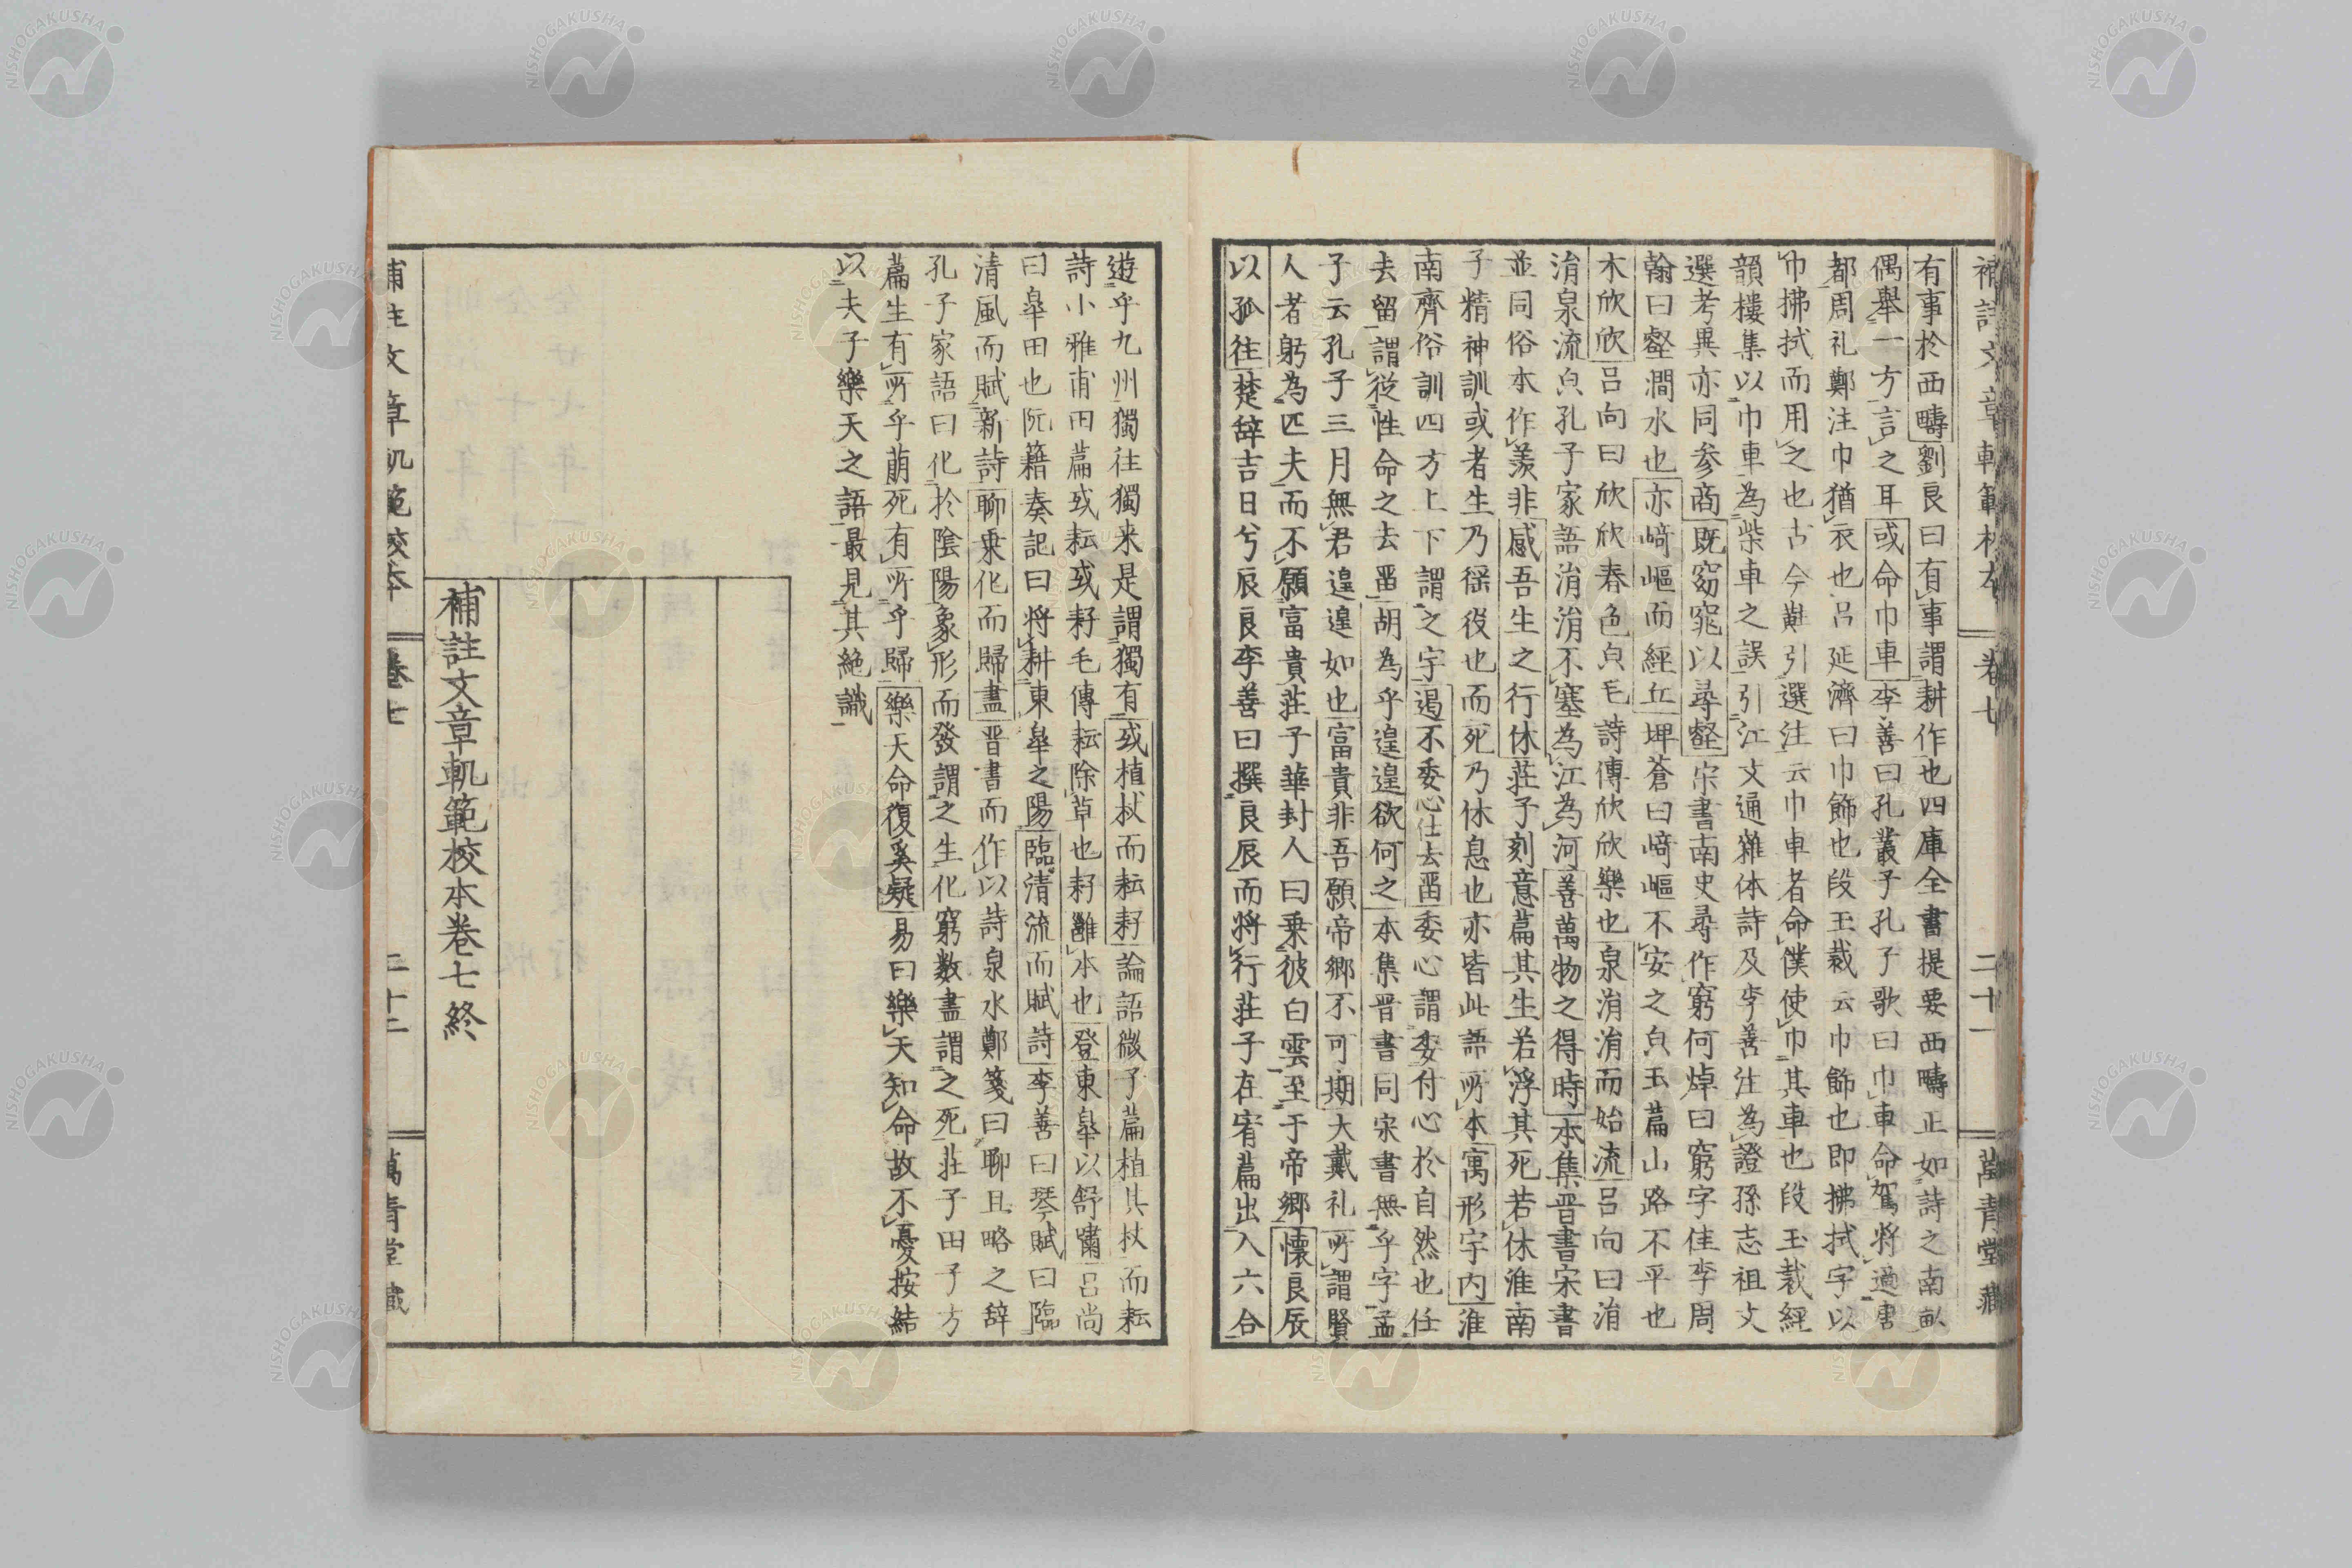 補註文章軌範校本 卷七 二十一 萬青堂藏
有事於西疇劉良曰有事謂耕作也四庫全書提要西疇止如詩之南畝
偶舉一方言之耳或命巾車李善曰孔叢子孔子歌曰巾車命駕將適唐
都周礼鄭注巾猶衣也呂延濟曰巾飾也段玉裁云巾飾也即拂拭字以
巾拂拭而用之也古今韱引選注云巾車者命僕使巾其車也段玉裁經
韻樓集以巾車為柴車之誤引江文通雜体詩及李善注為證孫志祖文
選考異亦同参商既窈窕以尋壑宗書南史尋作窮何焯曰窮字佳李周
翰曰壑澗水也亦﨑嶇而經丘埤蒼曰﨑嶇不安之皃玉篇山路不平也
木欣欣呂向曰欣欣春色皃毛詩傳欣欣樂也泉涓涓而始流呂向曰涓
涓泉流皃孔子家語涓涓不塞為江為河善萬物之得時本集晋書宋書
並同俗本作羨非感吾生之行休莊子刻意篇其生若浮其死若休淮南
子精神訓或者生乃徭役也而死乃休息也亦皆此語所本寓形宇内淮
南齊俗訓四方上下謂之宇遏不委心仕去畱委心謂委付心於自然也任
去留謂從性命之去畱胡為乎遑遑欲何之本集晋書同宋書無乎字孟
子云孔子三月無君遑遑如也富貴非吾願帝鄉不可期大戴礼所謂賢
人者躬為匹夫而不願富貴莊子華封人曰乗彼白雲至于帝鄉懷良辰
以孤往楚辞吉日兮辰良李善曰撰良辰而将行莊子在宥篇出入六合
遊乎九州獨往獨来是謂獨有或植杖而耘耔論語微子篇植其杖而耘
詩小雅甫田篇或耘或耔毛傳耘除草也耔雝本也登東皐以舒嘯呂尚
曰皐田也阮籍奏記曰将耕東皐之陽臨清流而賦詩李善曰琴賦曰臨
清風而賦新詩聊乗化而歸盡晋書而作以詩泉水鄭箋曰聊且略之辞
孔子家語曰化於陰陽象形而發謂之生化窮数盡謂之死莊子田子方
篇生有所乎萠死有所乎歸樂天命復奚疑易曰樂天知命故不憂按結
以夫子樂天之語最見其絶識
補註文章軌範校本卷七終
補註文章軌範校本 卷七 二十二 萬青堂藏